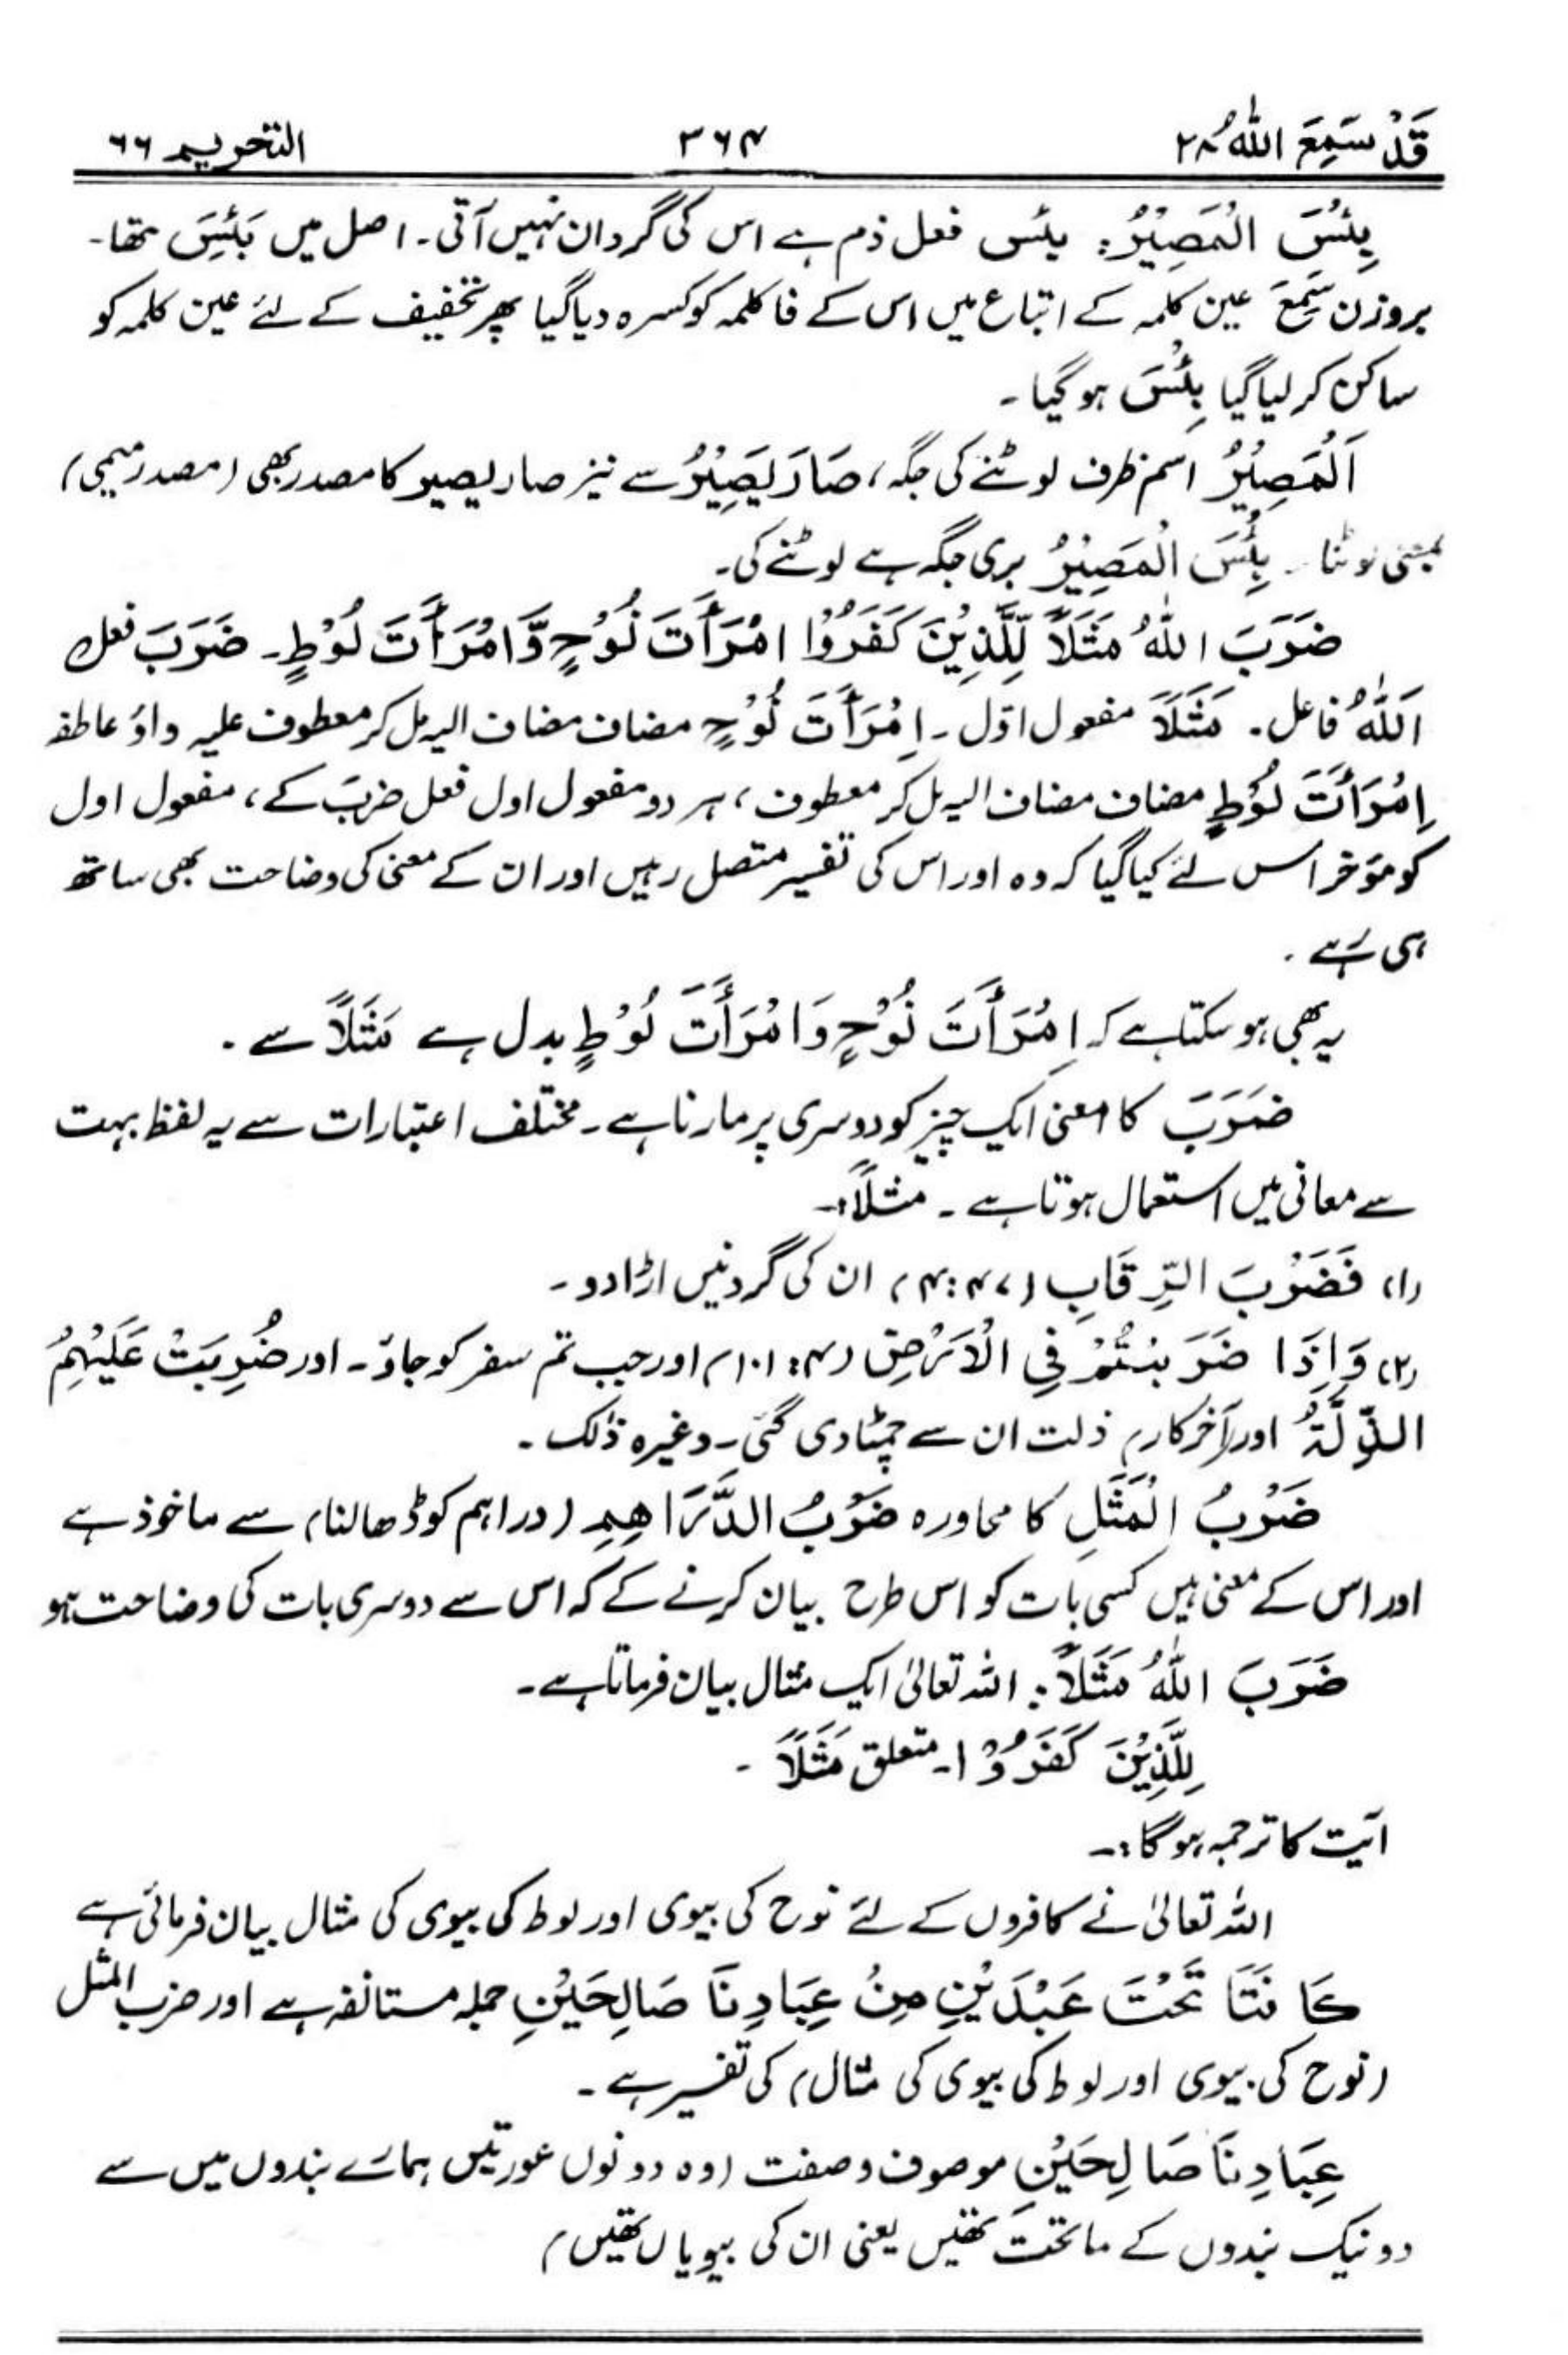 قَدْ سَمِعَ اللّٰهُ ۲۸ ۳۶۴ التحریم ۶۶
بِئْسَ الْمَصِیْرُ: بئس فعل ذم ہے اس کی گردان نہیں آتی۔ اصل میں بَئِسَ تھا۔
بروزن سَمِعَ عین کلمہ کے اتباع میں اس کے فا کلمہ کو کسرہ دیا گیا پھر تخفیف کے لئے عین کلمہ کو
ساکن کر لیا گیا بِئْسَ ہو گیا۔
اَلْمَصِیْرُ اسم ظرف لوٹنے کی جگہ، صَارَ یَصِیْرُ سے نیز صار یصیر کا مصدر بھی (مصدر میمی)
بمعنی لوٹنا۔ بِئْسَ الْمَصِیْرُ بری جگہ ہے لوٹنے کی۔
ضَرَبَ اللّٰهُ مَثَلًا لِّلَّذِیْنَ كَفَرُوْا امْرَأَتَ نُوْحٍ وَّامْرَأَتَ لُوْطٍ۔ ضَرَبَ فعل
اَللّٰهُ فاعل۔ مَثَلًا مفعول اوّل۔ اِمْرَأَتَ نُوْحٍ مضاف مضاف الیہ مل کر معطوف علیہ واؤ عاطفہ
اِمْرَأَتَ لُوْطٍ مضاف مضاف الیہ مل کر معطوف، ہر دو مفعول اول فعل ضربَ کے، مفعول اول
کو مؤخر اس لئے کیا گیا کہ وہ اور اس کی تفسیر متصل رہیں اور ان کے معنی کی وضاحت بھی ساتھ
ہی رہے۔
یہ بھی ہو سکتا ہے کہ اِمْرَأَتَ نُوْحٍ وَامْرَأَتَ لُوْطٍ بدل ہے مَثَلًا سے۔
ضَرَبَ کا معنی ایک چیز کو دوسری پر مارنا ہے۔ مختلف اعتبارات سے یہ لفظ بہت
سے معانی میں استعمال ہوتا ہے۔ مثلًا:۔
(۱) فَضَرْبَ الرِّقَابِ (۴:۴۷) ان کی گردنیں اڑا دو۔
(۲) وَاِذَا ضَرَبْتُمْ فِی الْاَرْضِ (۴:۱۰۱) اور جب تم سفر کو جاؤ۔ اور ضُرِبَتْ عَلَیْہِمُ
الذِّلَّۃُ اور (آخرکار) ذلت ان سے چمٹا دی گئی۔ وغیرہ ذٰلک۔
ضَرْبُ الْمَثَلِ کا محاورہ ضَرْبُ الدَّرَاهِمِ (دراہم کو ڈھالنا) سے ماخوذ ہے
اور اس کے معنی ہیں کسی بات کو اس طرح بیان کرنے کے کہ اس سے دوسری بات کی وضاحت ہو
ضَرَبَ اللّٰهُ مَثَلًا: اللہ تعالیٰ ایک مثال بیان فرماتا ہے۔
لِلَّذِیْنَ كَفَرُوْا۔ متعلق مَثَلًا۔
آیت کا ترجمہ ہو گا:۔
اللہ تعالیٰ نے کافروں کے لئے نوح کی بیوی اور لوط کی بیوی کی مثال بیان فرمائی ہے
كَانَتَا تَحْتَ عَبْدَیْنِ مِنْ عِبَادِنَا صَالِحَیْنِ جملہ مستانفہ ہے اور ضرب المثل
(نوح کی بیوی اور لوط کی بیوی کی مثال) کی تفسیر ہے۔
عِبَادِنَا صَالِحَیْنِ موصوف و صفت (وہ دونوں عورتیں ہمارے بندوں میں سے
دو نیک بندوں کے ماتحت تھیں یعنی ان کی بیویاں تھیں)